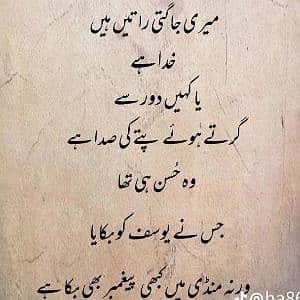 میری جاگتی راتیں ہیں
خدا ہے
یا کہیں دور سے
گرتے ہوئے پتے کی صدا ہے
وہ حُسن ہی تھا
جس نے یوسف کو بکایا
ورنہ منڈی میں کبھی پیغمبر بھی بکا ہے